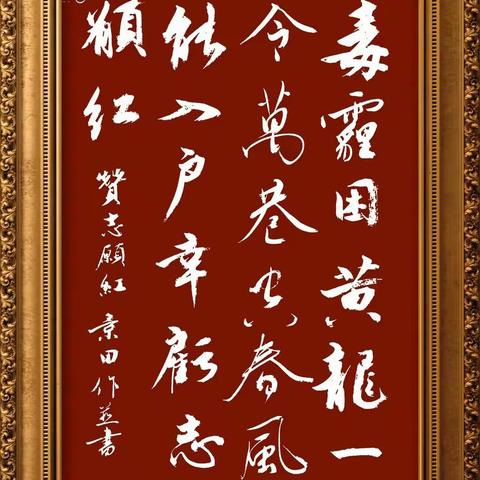 毒霾困黄龍一
令萬巷空春風
能入户幸虧志
願紅
贊志願紅 景田作並書